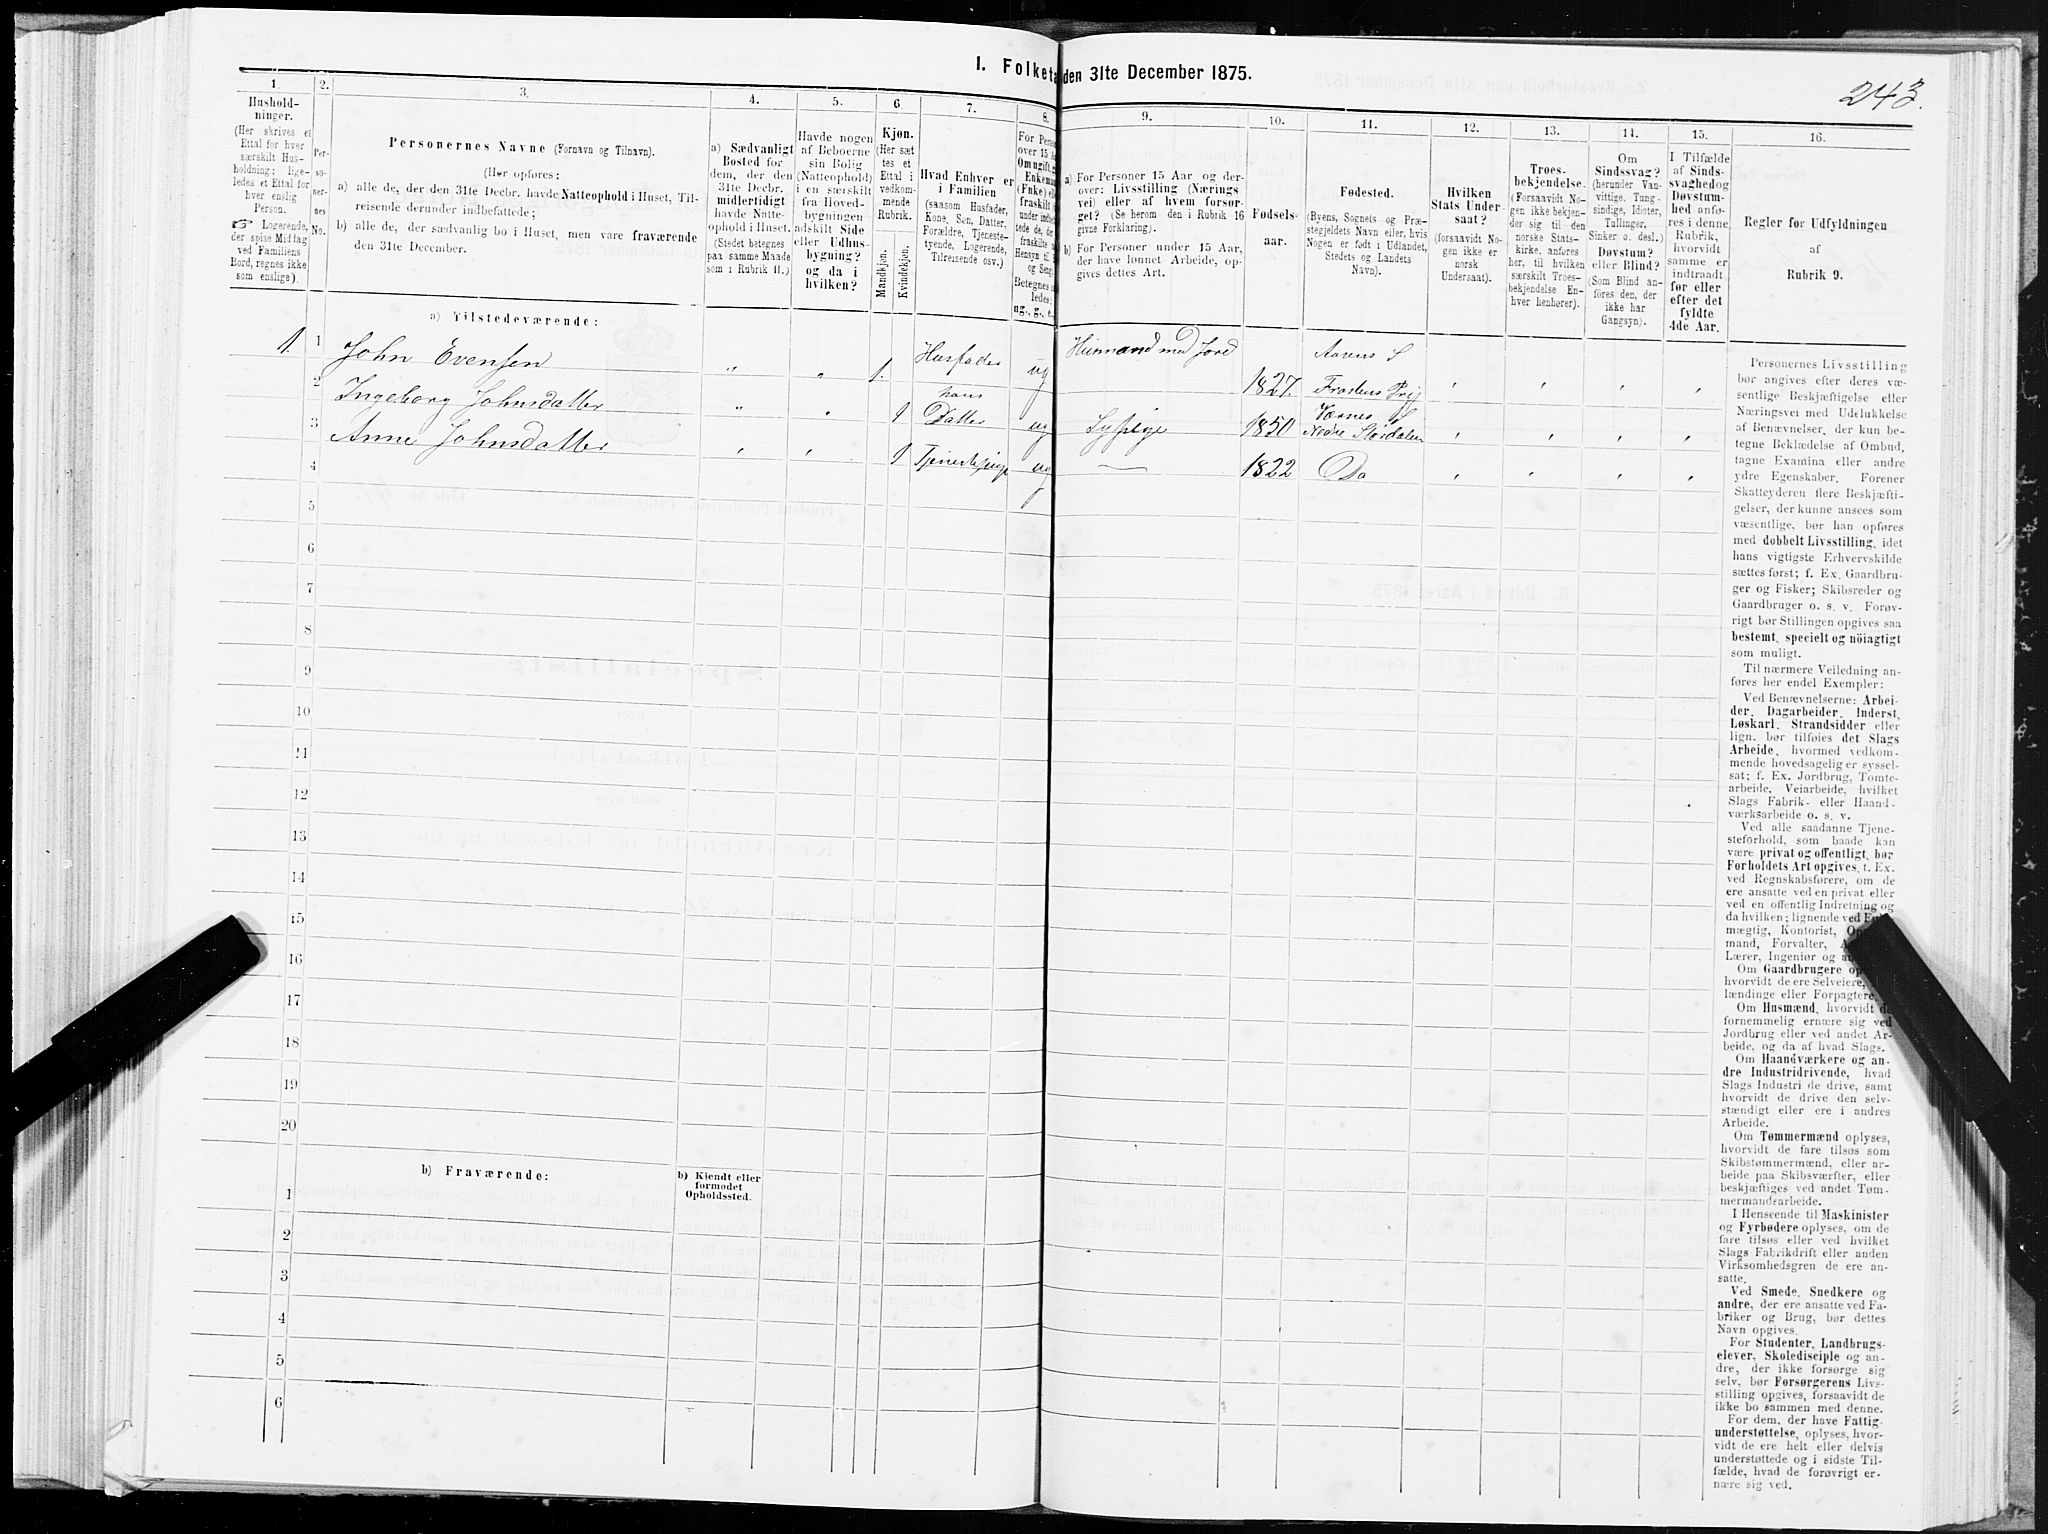 I. Folketa den 31te December 1875.
243.
1.
2.
3.
4.
5.
6
7.
8.
9.
10.
11.
12.
13.
14.
15.
16.
Hushold-
ninger.
(Her skrives et
Ettal for hver
særskilt Hus-
holdning; lige-
ledes et Ettal for
hver enslig
Person.
☞ Logerende,
der spise Middag
ved Familiens
Bord, regnes ikke
som enslige).
Per-
so-
ner-
nes
No.
Personernes Navne (Fornavn og Tilnavn).
(Her opføres:
a) alle de, der den 31te Decbr. havde Natteophold i Huset, Til-
reisende derunder indbefattede;
b) alle de, der sædvanlig bo i Huset, men vare fraværende
den 31te December.
a) Sædvanligt
Bosted for
dem, der den
31te Decbr.
midlertidigt
havde Natte-
ophold i Huset.
(Stedet betegnes
paa samme Maade
som i Rubrik II.)
Havde nogen
af Beboerne
sin Bolig
(Natteophold)
i en særskilt
fra Hoved-
bygningen
adskilt Side
eller Udhus-
bygning?
og da i
hvilken?
Kjøn.
(Her sæt
tes et
Ettal i
vedkom-
mende
Rubrik.
Mandkjøn.
Kvindekjøn.
Hvad Enhver er
i Familien
(saasom Husfader,
Kone, Søn, Datter,
Forældre, Tjeneste-
tyende, Logerende,
Tilreisende osv.)
a) For Personer 15 Aar og der-
over: Livsstilling (Nærings
vei) eller af hvem forsør-
get? (Se herom den i Rubrik 16
givne Forklaring).
b) For Personer under 15 Aar,
der have lønnet Arbeide, op-
gives dettes Art.
Fødsels-
aar.
Fødested.
(Byens, Sognets og Præ-
stegjeldets Navn eller, hvis
Nogen er født i Udlandet,
Stedets og Landets
Navn).
Hvilken
Stats Under-
saat?
(forsaavidt No-
gen ikke er
norsk
Undersaat).
Troes-
bekjendelse.
(Forsaavidt No-
gen ikke bekjen-
der sig til den
norske Stats-
kirke, anføres
her, til hvilken
særskilt Troes-
bekjendelse En-
hver henhører).
Om
Sindssvag?
(herunder Van-
vittige, Tung-
sindige, Idioter,
Tullinger,
Sinker o. desl.)
Døvstum?
eller Blind?
(Som Blind an-
føres den, der
ikke har
Gangsyn).
I Tilfælde
af Sinds-
svaghed og
Døvstum-
hed anfø-
res i denne
Rubrik,
hvorvidt
samme er
indtraadt
før eller
efter det
fyldte
4de Aar.
Regler for Udfyldningen
af
Rubrik 9.
a) Tilstedeværende:
1. 1 John Evensen " " 1. Husfader ug Husmand med Jord 1827. Aasens S Frostens Prgj
2 Ingeborg Johnsdatter " " 1 hans Datter ug Sypige 1850 Værnes S Nedre Størdalen
3 Anne Johnsdatter " " 1 Tjenestepige ug — 1822 Do
4
5
6
7
8
9
10
11
12
13
14
15
16
17
18
19
20
b) Fraværende:
b) Kiendt eller
formodet
Opholdssted.
1
2
3
4
5
6
Personernes Livsstilling
bør angives efter deres væ-
sentlige Beskjæftigelse eller
Næringsvei med Udelukkelse
af Benævnelser, der kun be-
tegne Beklædelse af Ombud,
tagne Examina eller andre
ydre Egenskaber. Forener
Skatteyderen flere Beskjæfti-
gelser, der kunne ansees som
væsentlige, bør han opføres
med dobbelt Livsstilling, idet
hans vigtigste Erhvervskilde
sættes først; f. Ex. Gaardbru-
ger og Fisker; Skibsreder og
Gaardbruger o. s. v. Forøv-
rigt bør Stillingen opgives saa
bestemt, specielt og nöiagtigt
som muligt.
Til nærmere Veiledning an-
føres her endel Exempler:
Ved Benævnelserne: Arbei-
der, Dagarbeider, Inderst,
Løskarl, Strandsidder eller
lign. bør tilføies det Slags
Arbeide, hvormed vedkom-
mende hovedsagelig er syssel-
sat; f. Ex. Jordbrug, Tomte-
arbeide, Veiarbeide, hvilket
Slags Fabrik- eller Haand-
værksarbeide o. s. v.
Ved alle saadanne Tjene-
steforhold, som baade kan
være privat og offentligt, bør
Forholdets Art opgives, t. Ex.
ved Regnskabsførere, om de
ere ansatte ved en privat eller
ved en offentlig Indretning og
da hvilken; lignende ved
mægtig, Kontorist,
mand, Forvalter,
Lærer, Ingeniør og
Om Gaardbrugere
hvorvidt de ere Selveiere,
lændinge eller Forpagtere.
Om Husmænd, hvorvidt de
fornemmelig ernære sig ved
Jordbrug eller ved andet Ar-
beide, og da af hvad Slags.
Om Haandværkere og an-
dre Industridrivende, hvad
Slags Industri de drive, samt
hvorvidt de drive den selv-
stændigt eller ere i andres
Arbeide.
Om Tømmermænd oplyses,
hvorvidt de fare tilsøs som
Skibstømmermænd, eller ar-
beide paa Skibsværfter, eller
beskjæftiges ved andet Tøm-
mermandsarbeide.
I Henseende til Maskinister
og Fyrbødere oplyses, om de
fare tilsøs eller ved hvilket
Slags Fabrikdrift eller anden
Virksomhedsgren de ere an-
satte.
Ved Smede, Snedkere og
andre, der ere ansatte ved Fa-
briker og Brug, bør dettes
Navn opgives.
For Studenter, Landbrugs-
elever, Skoledisciple og an-
dre, der ikke forsørge sig
selv, bør Forsørgerens Livs-
stilling opgives, forsaavidt de
ikke bo sammen med denne.
For dem, der have Fattig-
understøttelse, oplyses, hvor-
vidt de ere helt eller delvis
understøttede og i sidste Til-
fælde, hvad de forøvrigt er-
nære sig ved.